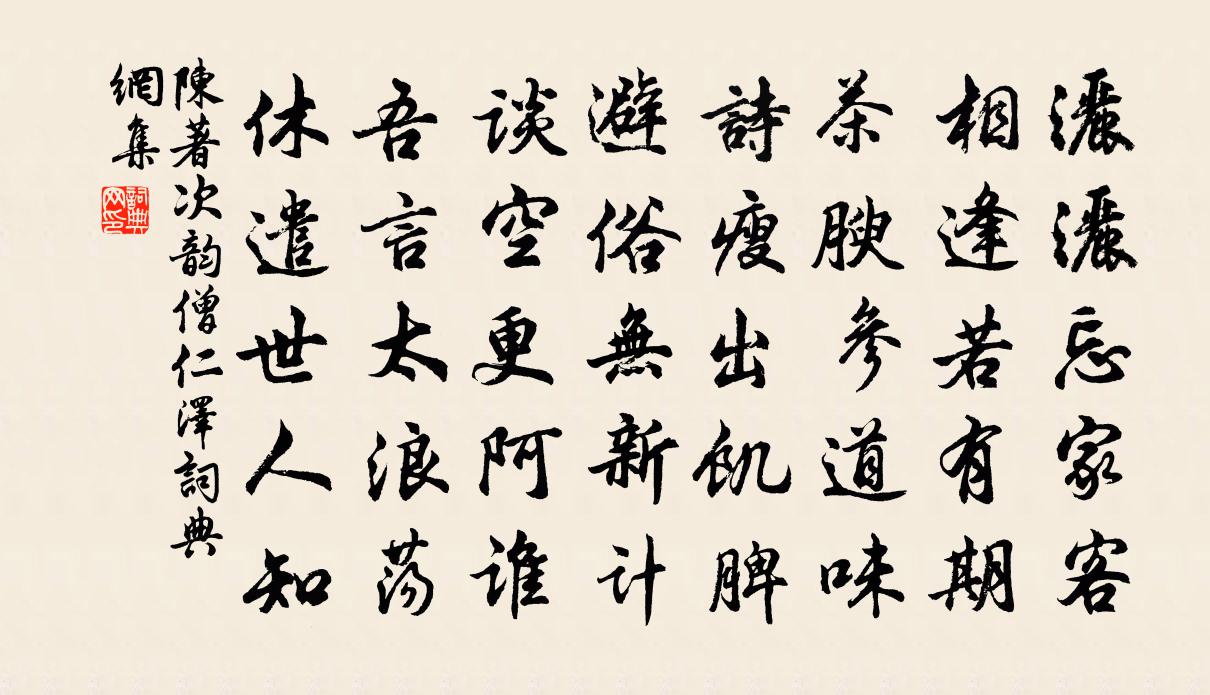 灑灑忘家客
相逢若有期
茶腴參道味
詩瘦出飢脾
避俗無新计
谈空更阿谁
吾言太浪荡
休遣世人知
陳著次韵僧仁澤詞典
網集
詞典
网印